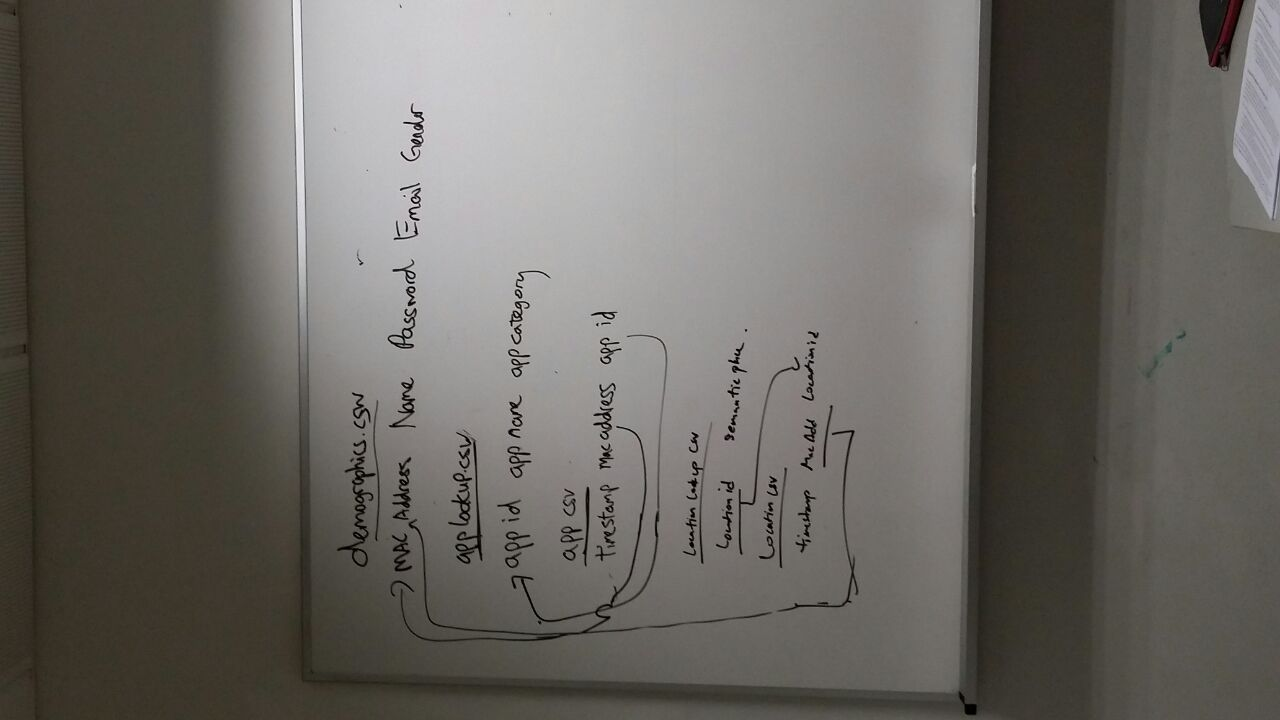 demographics.csv
MAC Address Name Password Email Gender
app lookup.csv
app id app name app category
app csv
timestamp mac address app id
Location Lookup csv
Location id semantic place.
Location csv
timestamp Mac Add Location id